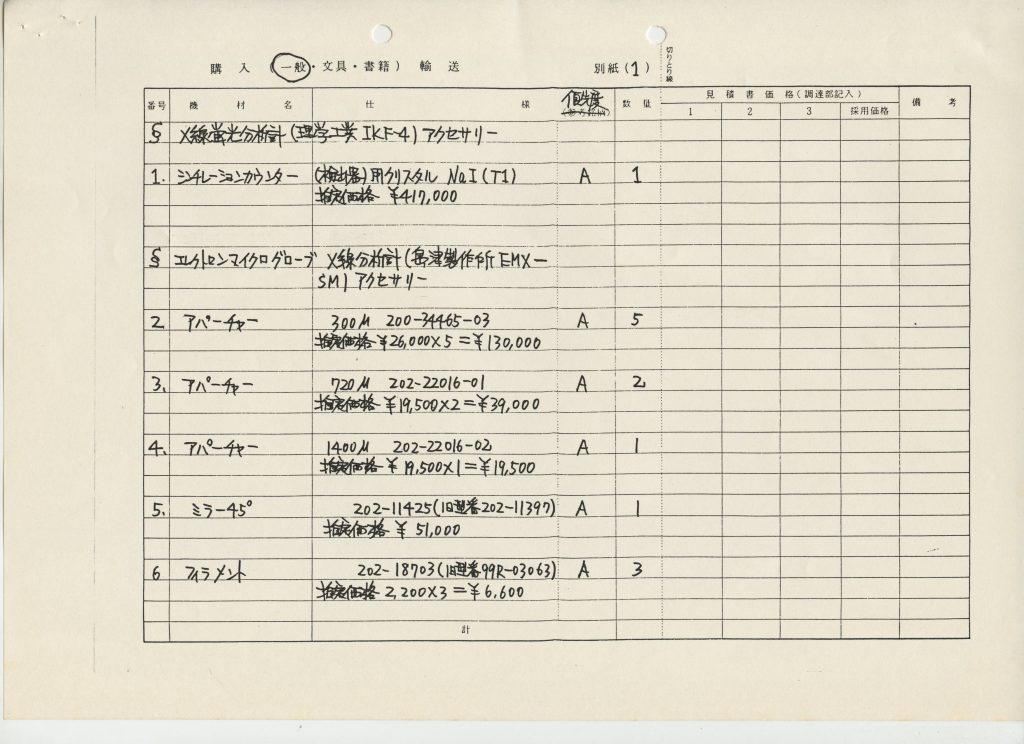 購入(一般・文具・書籍)輸送 別紙(1)
切りとり線
番号 機材名 仕様 優先度 数量 見積書価格(調達部記入) 備考
1 2 3 採用価格
§ X線螢光分析計(理学工業 IKF-4) アクセサリー
1. シンチレーションカウンター (検出器)用クリスタル NaI(Tl) A 1
指定価格 ¥417,000
§ エレクトロンマイクログローブ X線分析計(島津製作所 EMX-
SM) アクセサリー
2 アパーチャー 300μ 200-34465-03 A 5
指定価格 ¥26,000×5=¥130,000
3. アパーチャー 720μ 202-22016-01 A 2
指定価格 ¥19,500×2=¥39,000
4. アパーチャー 1400μ 202-22016-02 A 1
指定価格 ¥19,500×1=¥19,500
5. ミラー45° 202-11425(旧型番202-11397) A 1
指定価格 ¥51,000
6 フィラメント 202-18703(旧型番99R-03063) A 3
指定価格 2,200×3=¥6,600
計